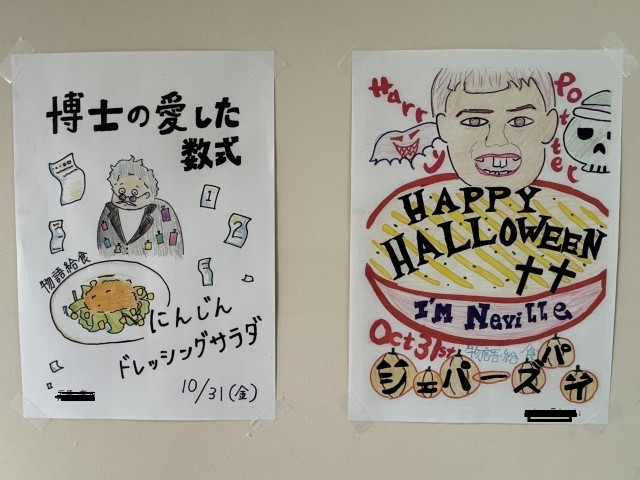 博士の愛した
数式
1
2
物語給食
にんじん
ドレッシングサラダ
10/31(金)
Harry
Potter
HAPPY
HALLOWEEN
I'M Neville
Oct 31st
物語給食
シェパーズパイ